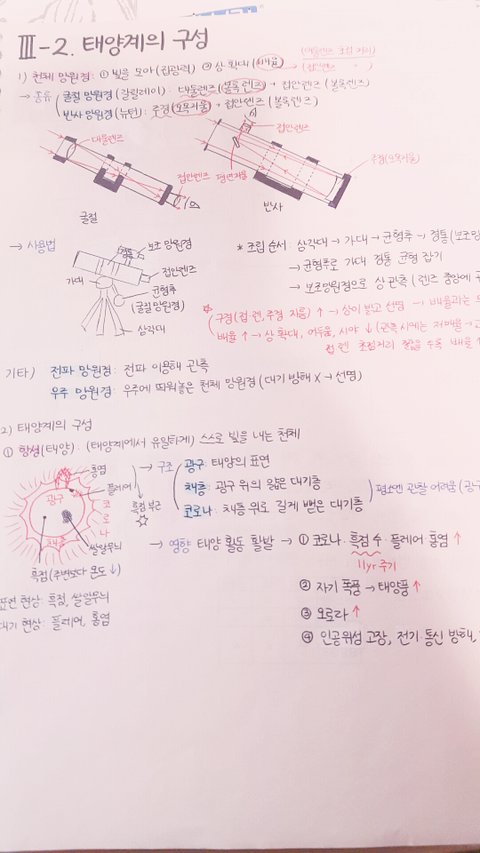 Ⅲ-2. 태양계의 구성
1) 천체 망원경: ① 빛을 모아(집광력) ② 상 확대(배율) → (대물렌즈 초점 거리)
(접안렌즈 〃 )
→ 종류 굴절 망원경(갈릴레이): 대물렌즈(볼록 렌즈) + 접안렌즈(볼록렌즈)
반사 망원경(뉴턴): 주경(오목거울) + 접안렌즈(볼록렌즈)
대물렌즈
접안렌즈
굴절
접안렌즈
평면거울
주경(오목거울)
반사
→ 사용법
보조 망원경
접안렌즈
가대
균형추
(굴절 망원경)
삼각대
* 조립 순서: 삼각대 → 가대 → 균형추 → 경통(보조망
→ 균형추로 가대 경통 균형 잡기
→ 보조망원경으로 상 관측(렌즈 중앙에
☆ 구경(접·렌, 주경 지름) ↑ → 상이 밝고 선명 → 배율과는
배율 ↑ → 상 확대, 어두움, 시야 ↓ (관측 시에는 저배율 → 고
접·렌 초점거리 짧을 수록 배율 ↑
기타) 전파 망원경: 전파 이용해 관측
우주 망원경: 우주에 띄워놓은 천체 망원경(대기 방해 X → 선명)
2) 태양계의 구성
① 항성(태양): (태양계에서 유일하게) 스스로 빛을 내는 천체
홍염
플레어
광구
코로나
채층
쌀알무늬
흑점 부근
☆
흑점(주변보다 온도 ↓)
→ 구조 광구: 태양의 표면
채층: 광구 위의 얇은 대기층
코로나: 채층 위로 길게 뻗은 대기층
평소엔 관찰 어려움(광구
→ 영향 태양 활동 활발 → ① 코로나·흑점 수·플레어 홍염 ↑
11yr 주기
② 자기 폭풍 → 태양풍 ↑
③ 오로라 ↑
④ 인공위성 고장, 전기·통신 방해,
표면 현상: 흑점, 쌀알무늬
대기 현상: 플레어, 홍염